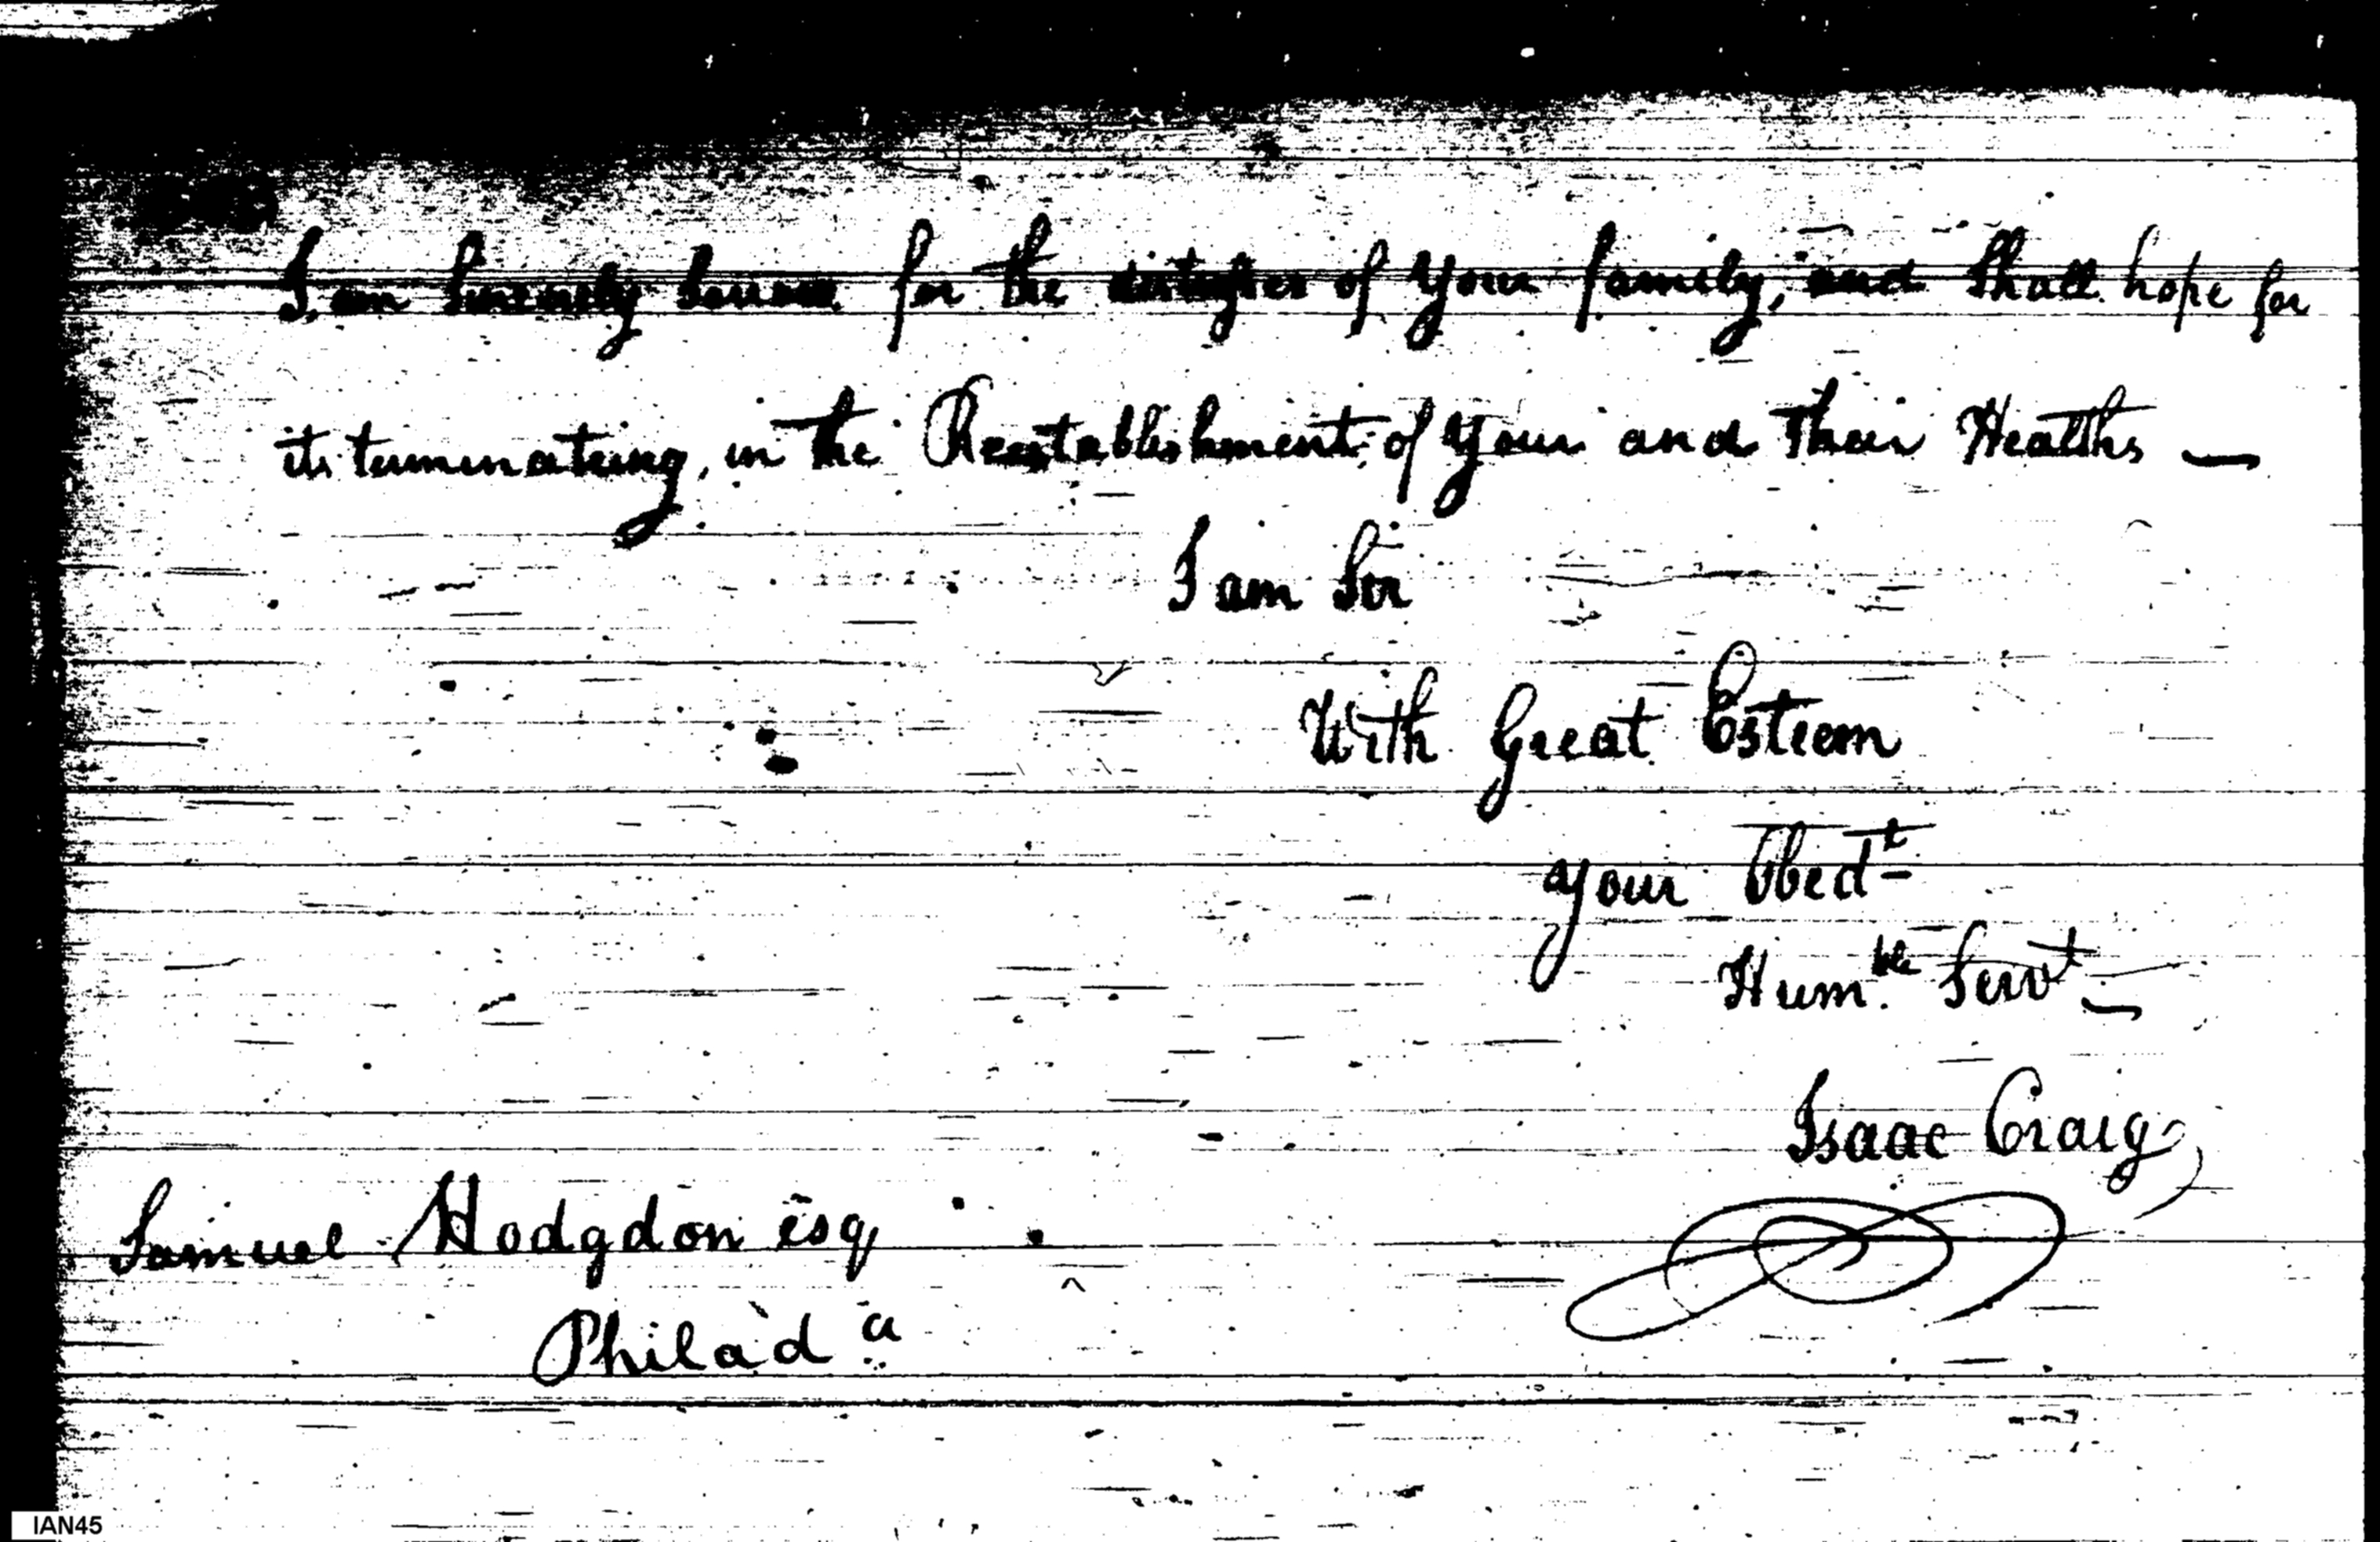 I am Sincerely Sorrow for the distress of your family, and Shall hope for
its terminating, in the Reestablishment of your and Their Healths —
I am Sir
With Great Esteem
your Obedt
Humble Servt
Isaac Craig
Samuel Hodgdon esq
Philada
IAN45